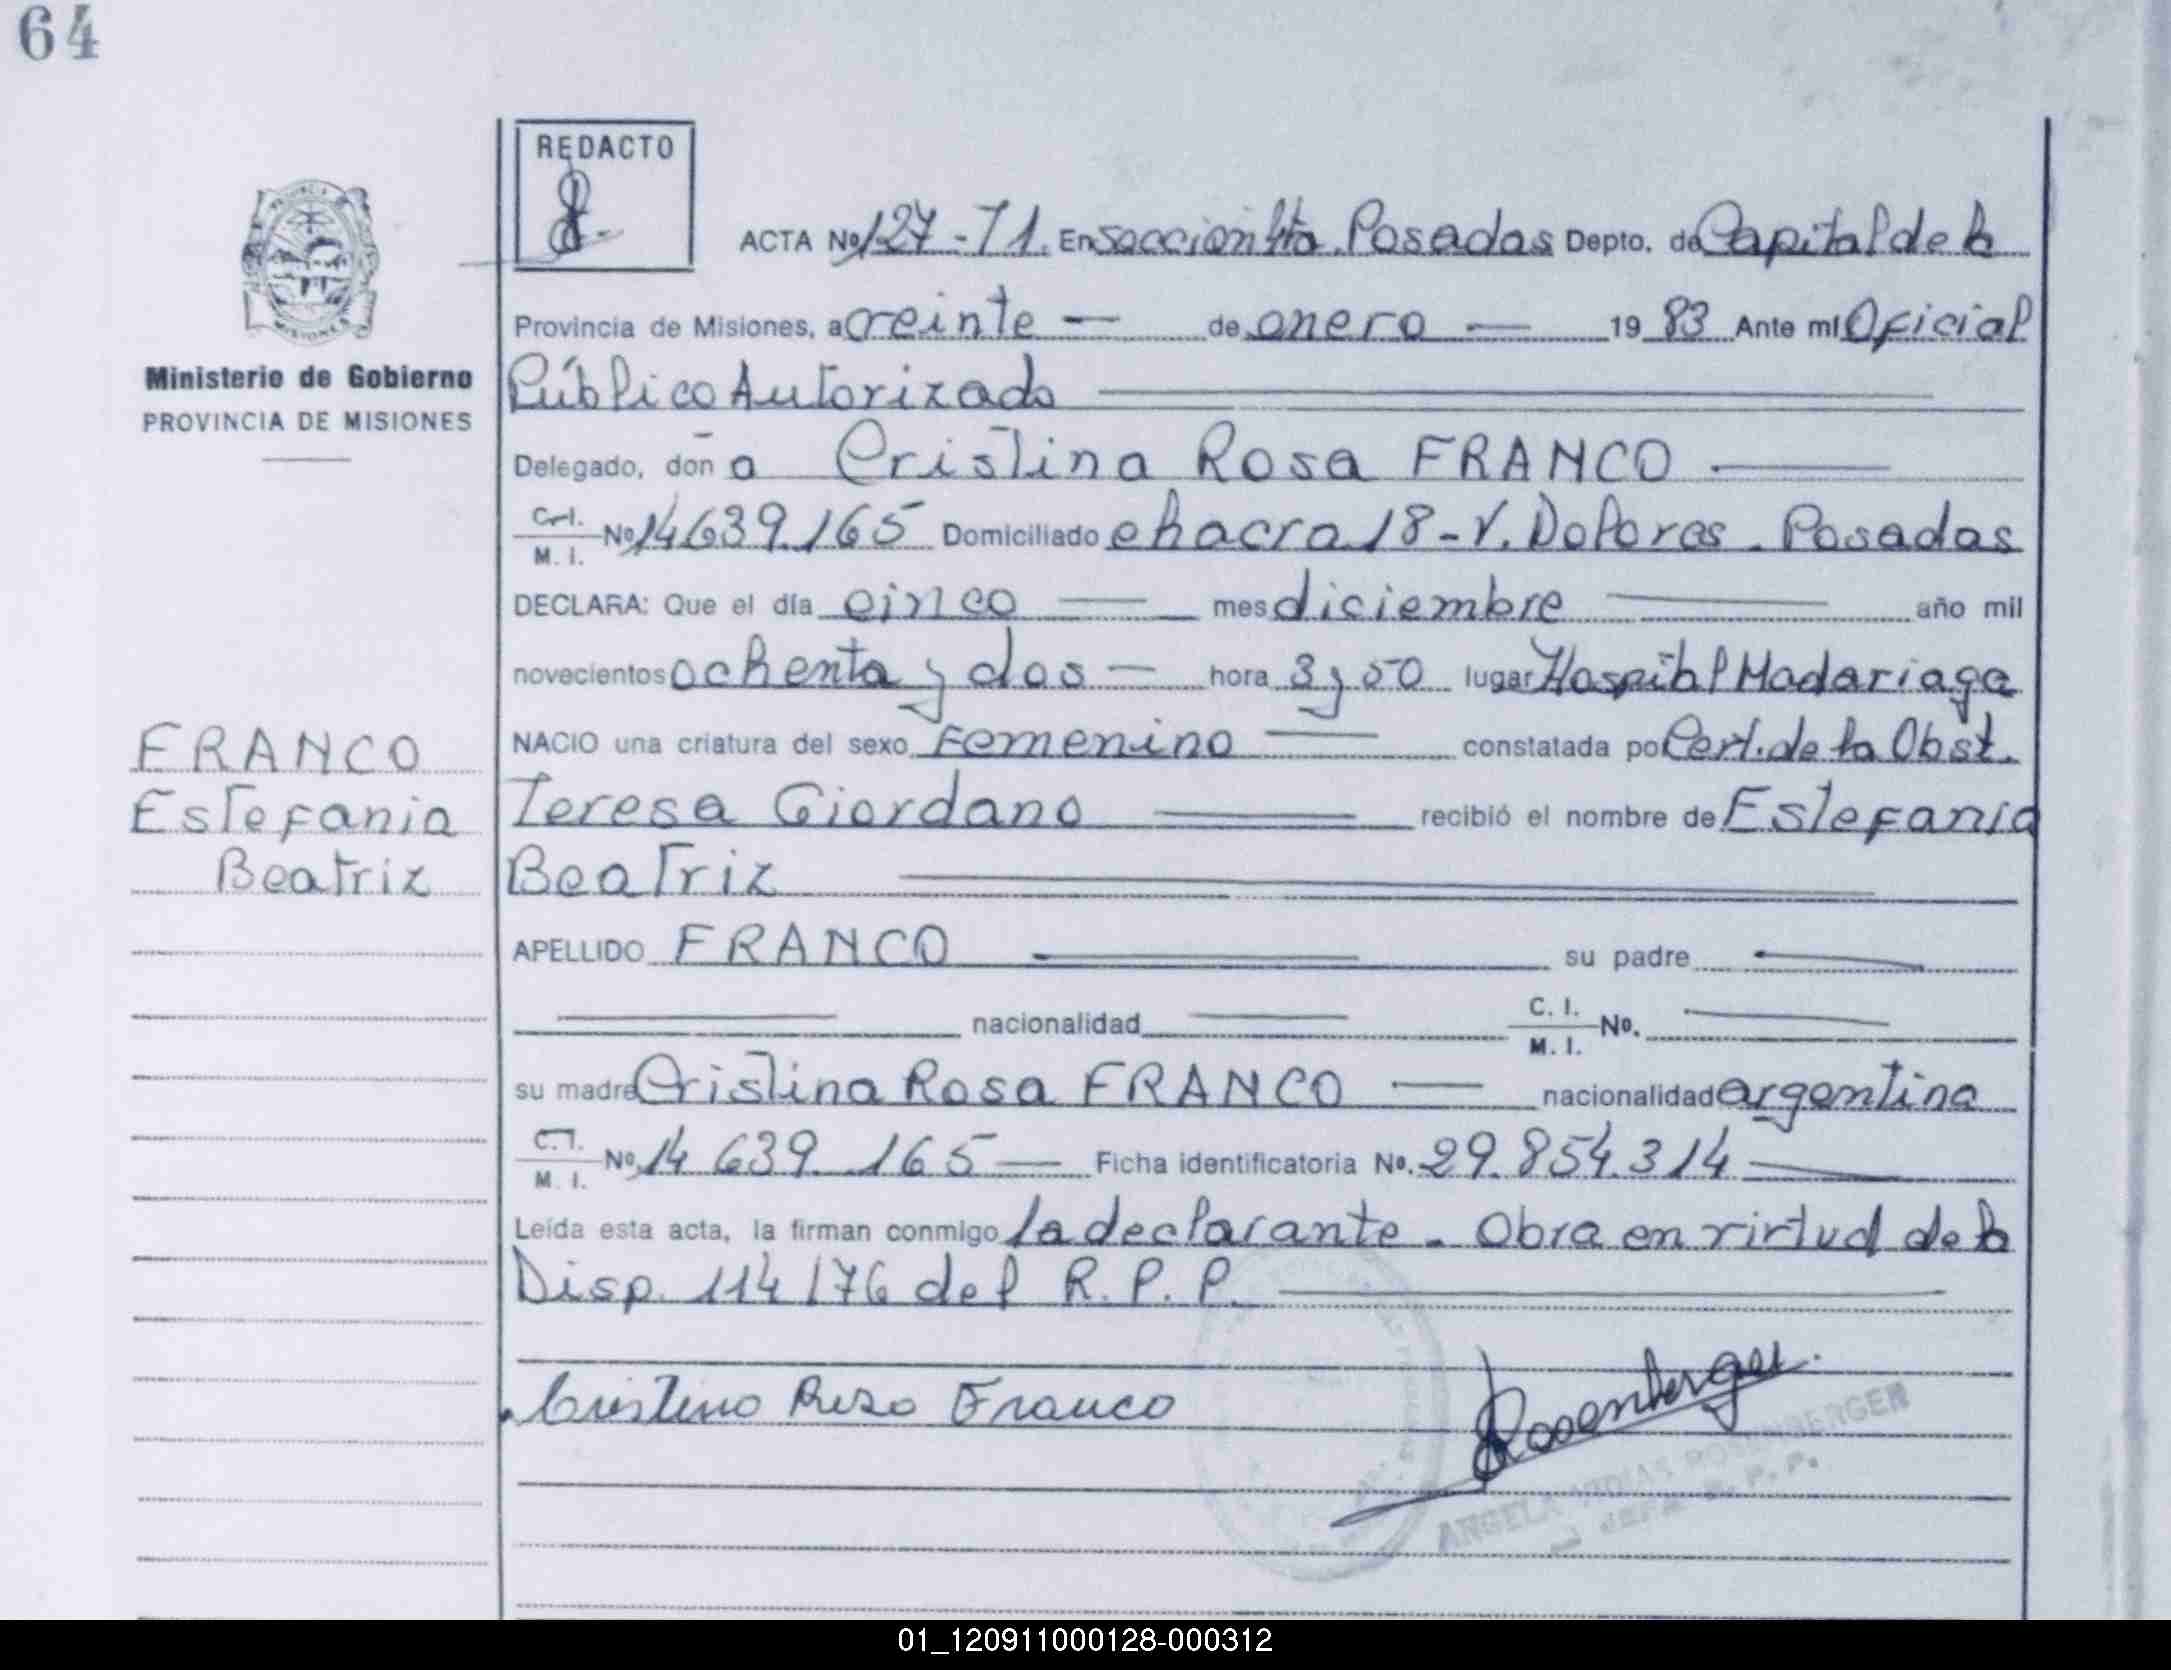 64
REDACTO
ACTA Nº 127-T1. En sección 4ta. Posadas Depto. de Capital de la
Provincia de Misiones, a veinte — de enero — 19 83 Ante mí Oficial
Público Autorizado
Ministerio de Gobierno
PROVINCIA DE MISIONES
Delegado, don a Cristina Rosa FRANCO
C. I. M. I. Nº 14639.165 Domiciliado chacra 18 - V. Dolores - Posadas
DECLARA: Que el día cinco — mes diciembre — año mil
novecientos ochenta y dos — hora 3 y 50 lugar Hospital Madariaga
NACIO una criatura del sexo Femenino — constatada por Cert. de la Obst.
Teresa Giordano — recibió el nombre de Estefania
Beatriz
FRANCO
Estefania
Beatriz
APELLIDO FRANCO — su padre —
— nacionalidad — C. I. M. I. Nº. —
su madre Cristina Rosa FRANCO — nacionalidad argentina
C. I. M. I. Nº 14 639.165 — Ficha identificatoria Nº. 29.854.314 —
Leída esta acta, la firman conmigo la declarante - Obra en virtud de la
Disp. 114/76 del R. P. P.
Cristina Rosa Franco
Rosenberger
ANGELA ROSENBERGER
JEFA R. P. P.
01_120911000128-000312